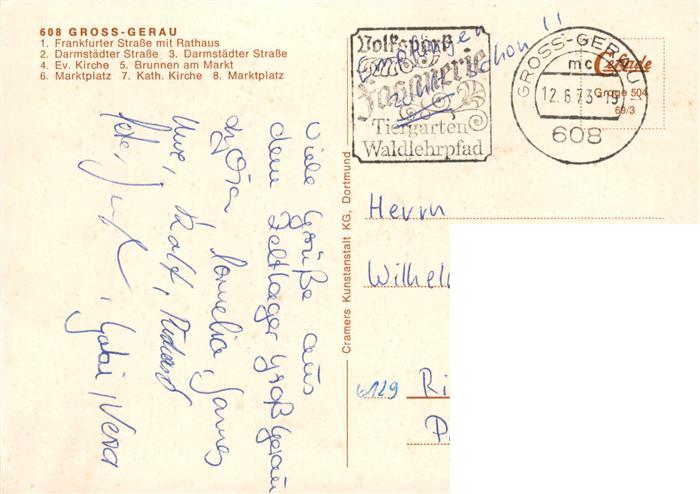 608 GROSS-GERAU
1. Frankfurter Straße mit Rathaus
2. Darmstädter Straße 3. Darmstädter Straße
4. Ev. Kirche 5. Brunnen am Markt
6. Marktplatz 7. Kath. Kirche 8. Marktplatz
Volkspark
Fasanerie
Tiergarten
Waldlehrpfad
schon !!
GROSS-GERAU
mc
12.6.73-19
608
Gefinde
Groge 504
69/3
Viele Grüße aus
dem Zeltlager Großgerau
Cornelia, Hannes
Uwe, Ralf, Richard
Gabi, Vera
Cramers Kunstanstalt KG, Dortmund
Herrn
Wilhel
6129 Ri